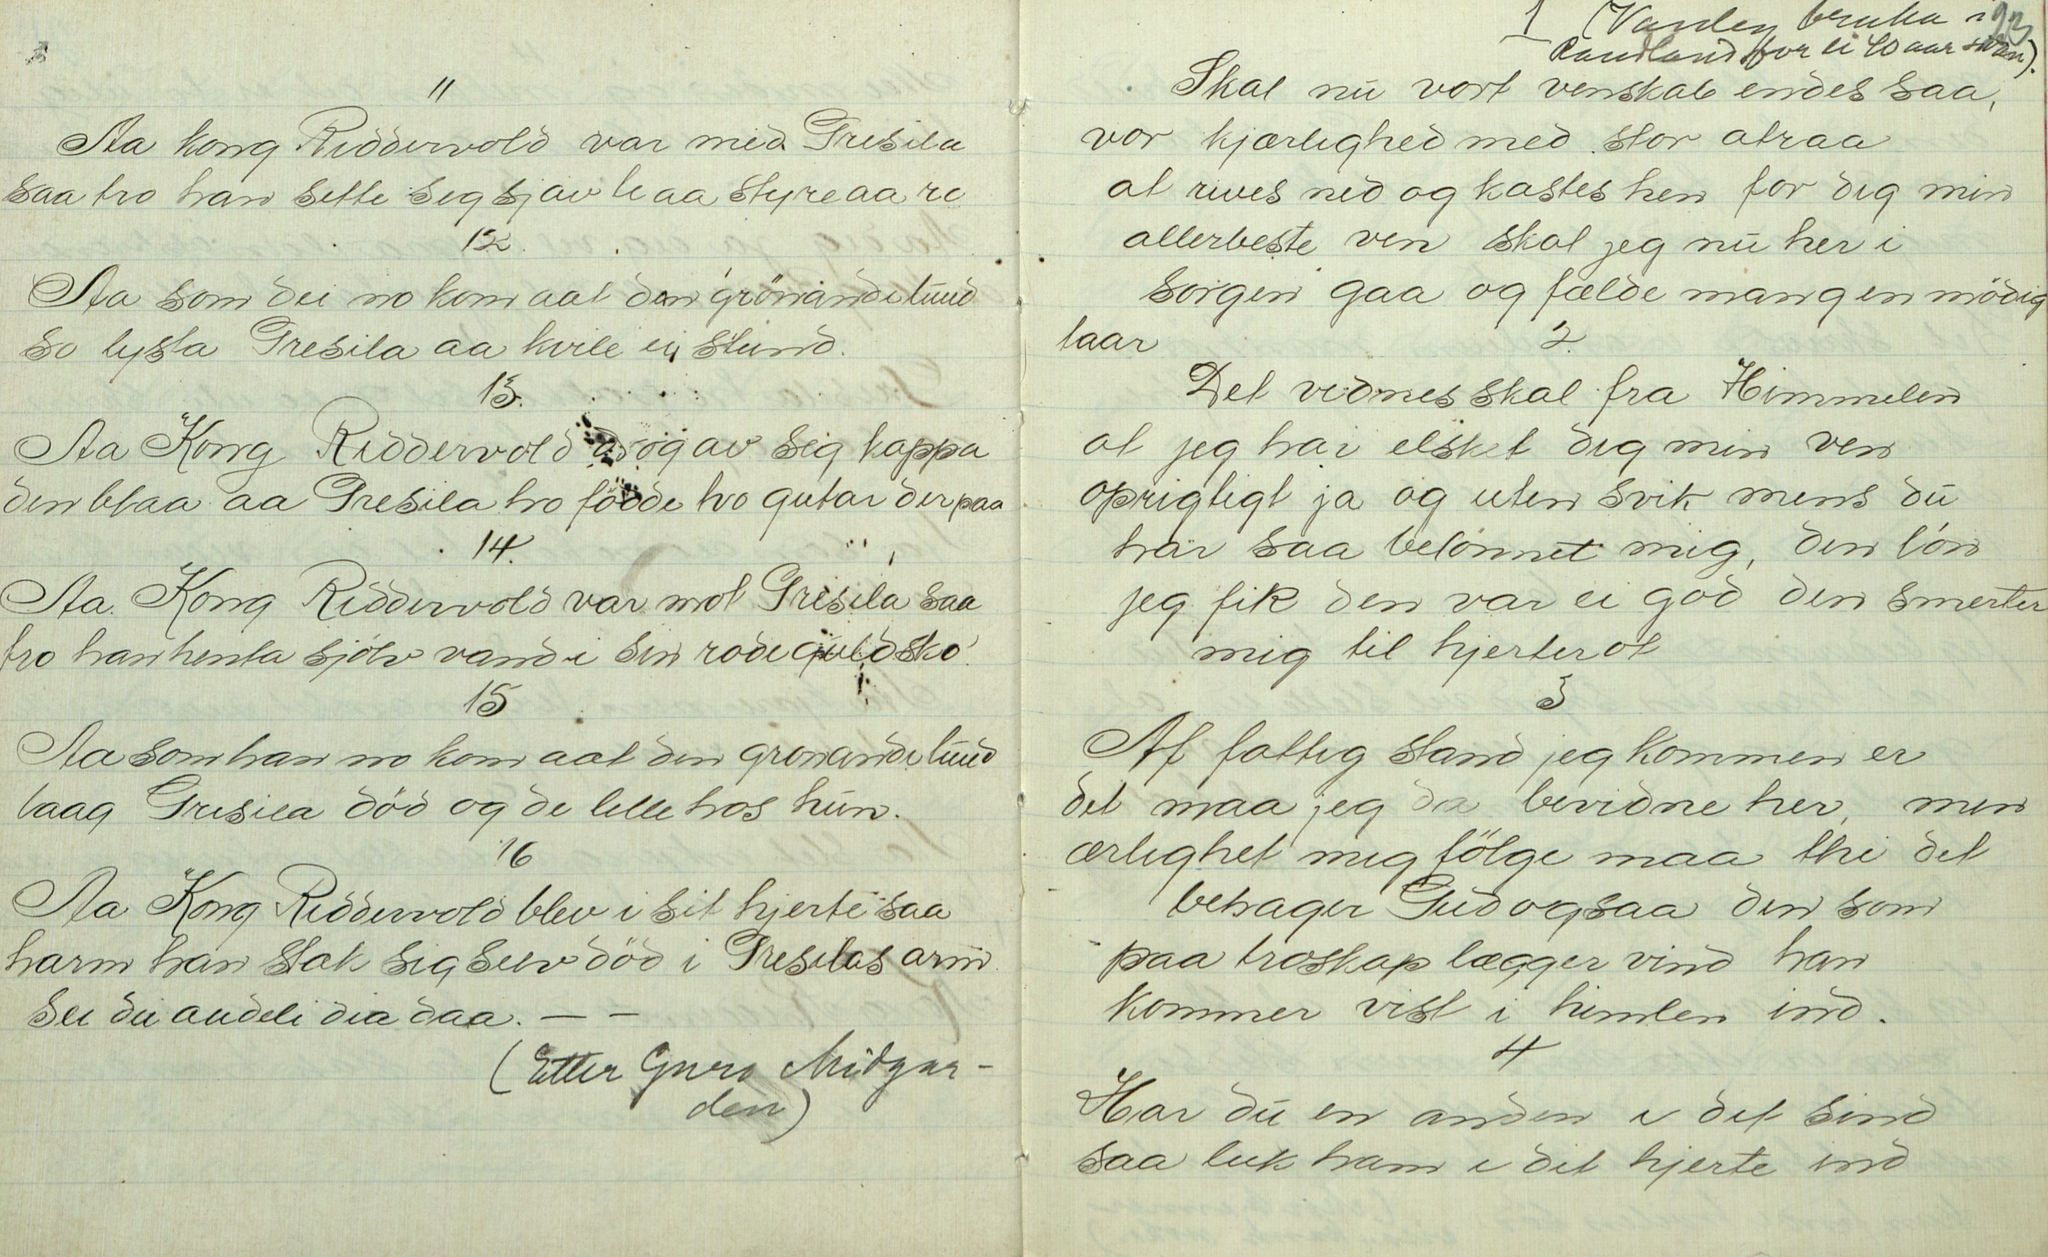 11
Aa kong Riddervold var med Gresila
saa tro han sette seg sjav te aa styre aa ro
12.
Aa som dei no kom aat den grönande lund
so lysta Gresila aa kvile ei stund.
13.
Aa Kong Riddervold drog av sig kappa
den blaa aa Gresila ho födde tvo gutar der paa
14.
Aa Kong Riddervold var mot Gresila saa
tro han henta sjölv vand i sin röde guldsko.
15
Aa som han no kom aat den gronande lund
laag Gresila död og de lille hos hun.
16
Aa Kong Riddervold blev i sit hjerte saa
harm han stak sig selv död i Gresilas arm
Sei du andeli dia daa. — —
(Etter Guro Midgar-
den)
23
1 (Vanleg bruka i
Rauland for ei 40 aar sidan).
Skal nu vort venskab endes saa,
vor kjærlighed med stor atraa
at rives ned og kastes hen for dig min
allerbeste ven skal jeg nu her i
sorgen gaa og fælde mang en mödig
taar
2.
Det vidnes skal fra Himmelen
at jeg har elsket dig min ven
oprigtigt ja og uten svik mens du
har saa belönnet mig, den lön
jeg fik den var ei god den smerter
mig til hjerterot
3
Af fattig stand jeg kommen er
det maa jeg da bevidne her, men
ærlighet mig fölge maa thi det
behager Gud ogsaa den som
paa troskap lægger vind han
kommer vist i himlen ind.
4
Har du en anden i dit sind
saa luk ham i dit hjerte ind